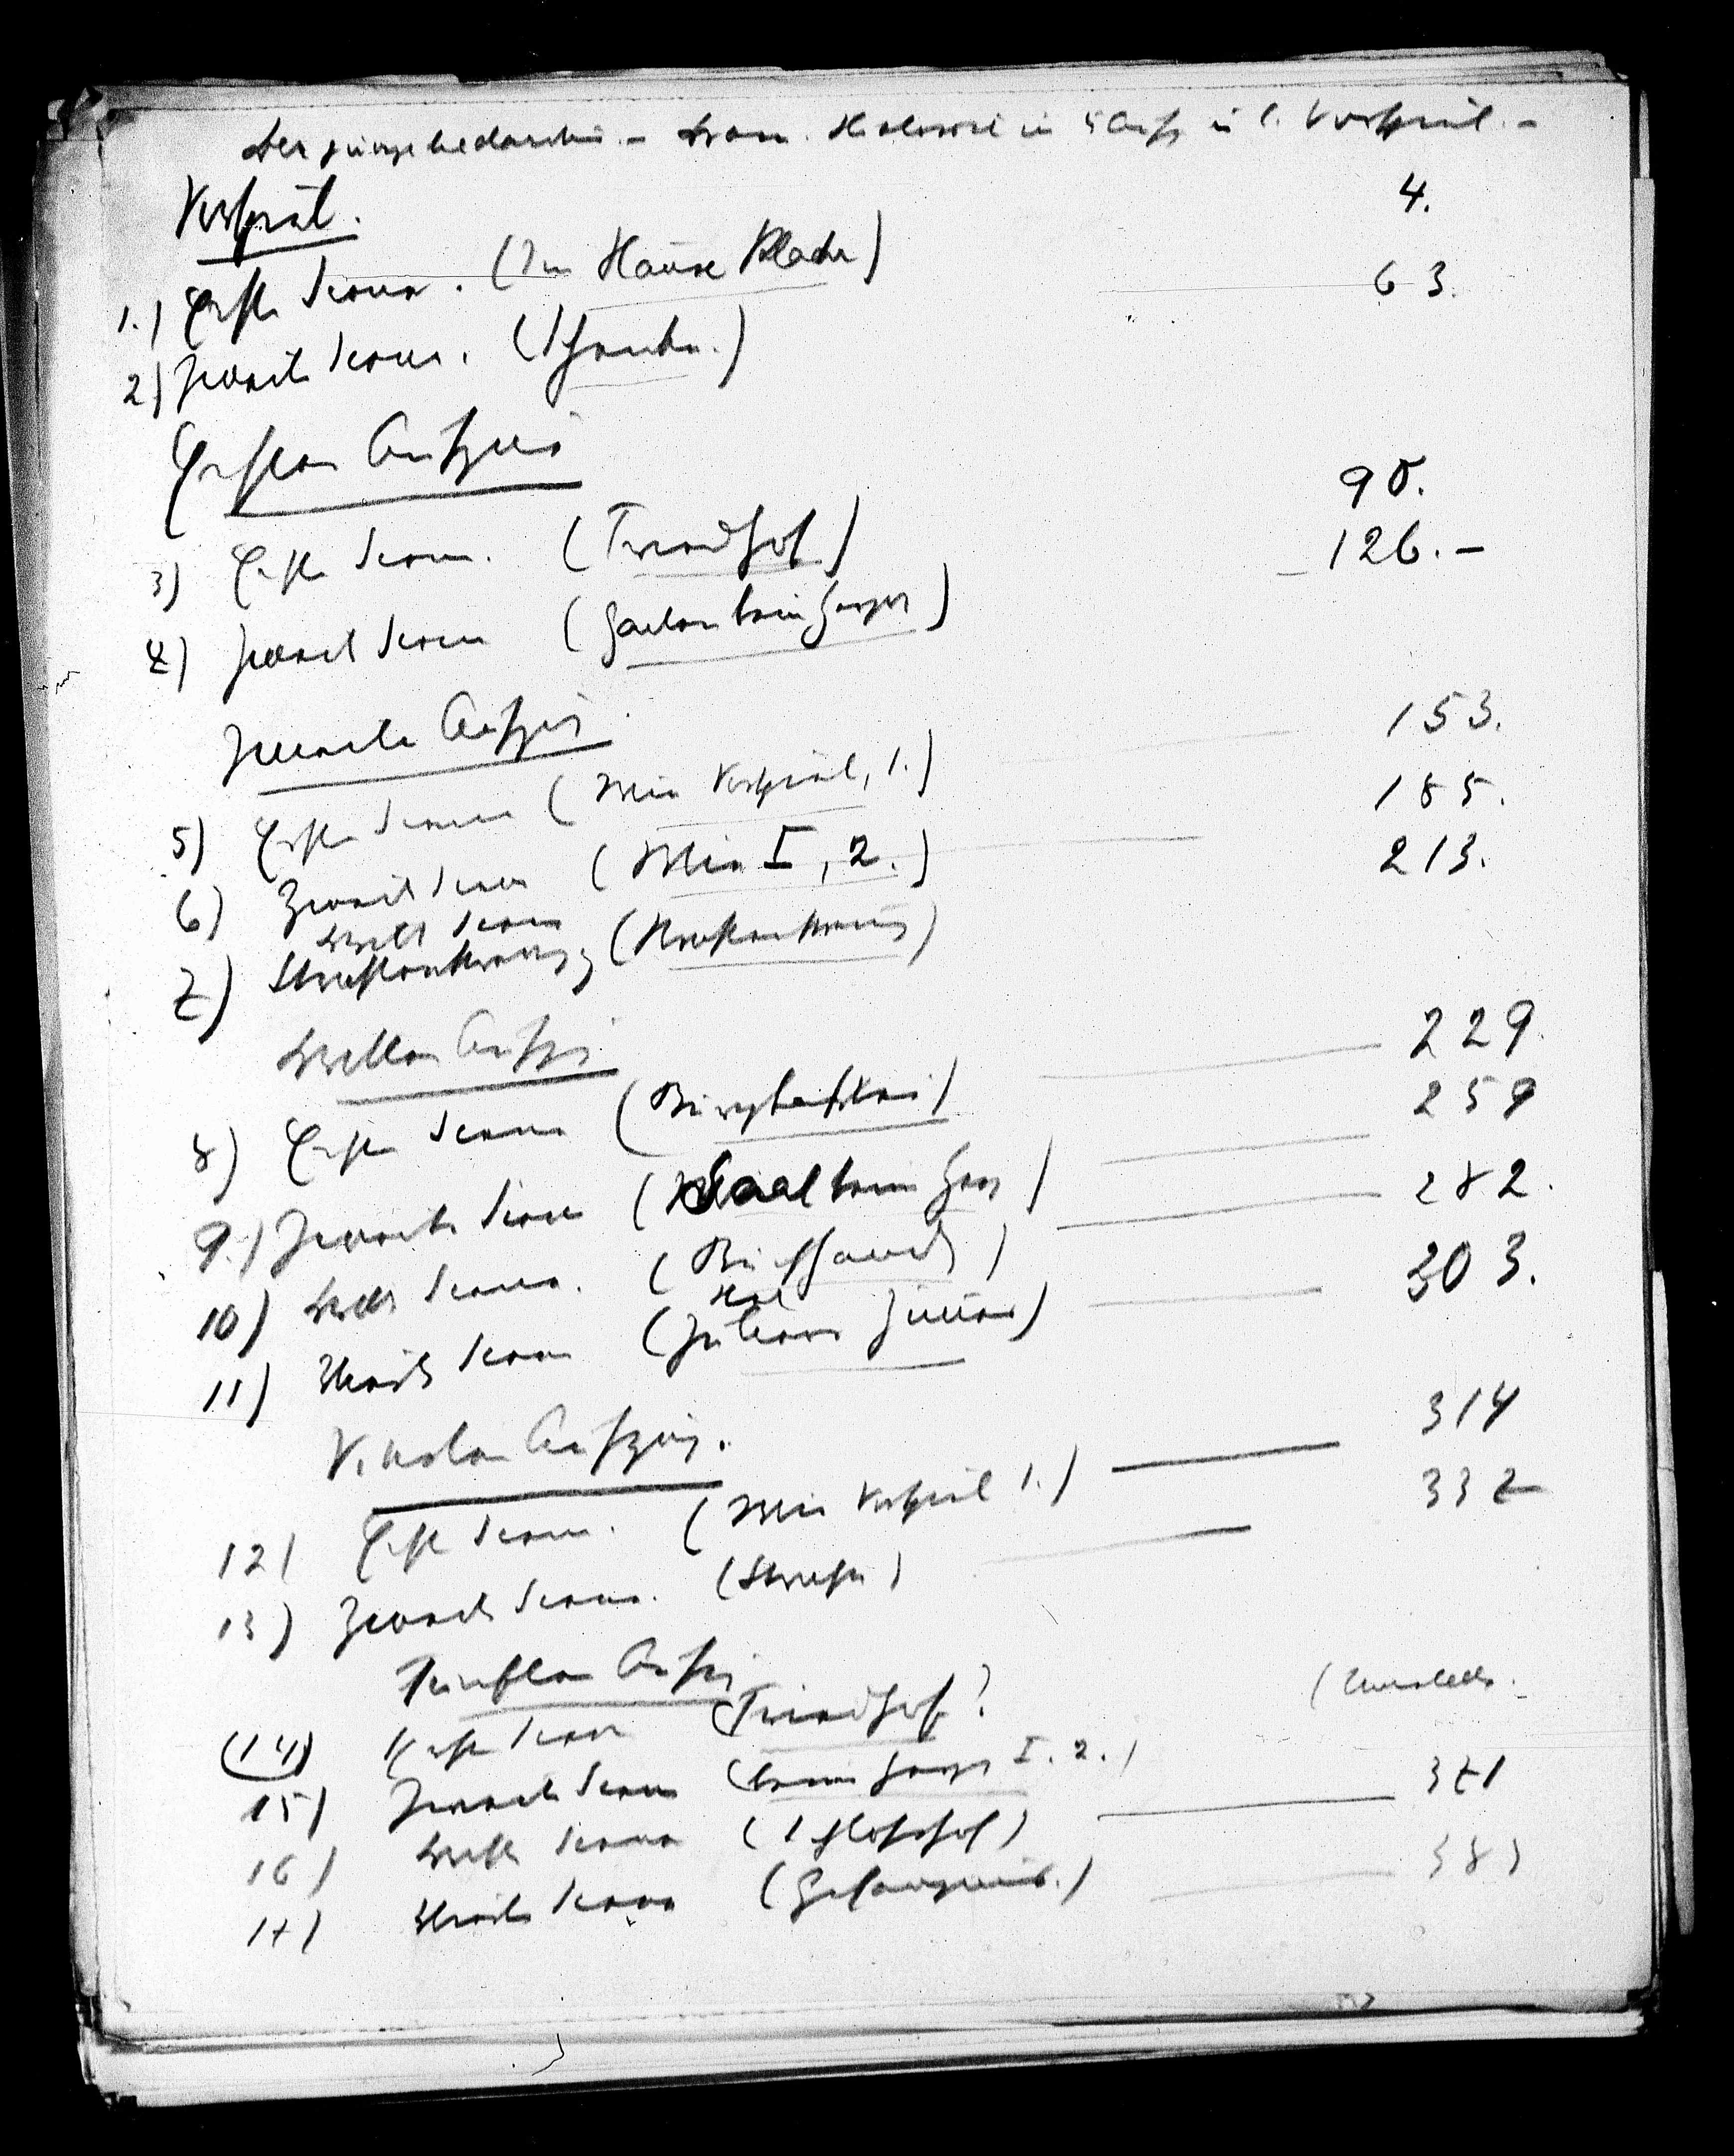 Der junge Medardus. – Dram. Historie in 5 Aufz. u. 1. Vorspiel. –
Vorspiel. 4.
1.) Erste Scene. (Im Hause Klaehr) 63.
2) Zweite Scene. (Schenke.)
Erster Aufzug
90.
3) Erste Scene. (Friedhof) 126. –
4) Zweite Scene (Garten beim Herzog)
Zweiter Aufzug 153.
5) Erste Scene (Wie Vorspiel, 1.) 185.
6) Zweite Scene (Wie I, 2.) 213.
7) Dritte Scene (
Dritter Aufzug 229.
8) Erste Scene (Burgbastei) 259
9.) Zweite Scene (Saal beim Herz 282.
10) Dritte Scene. ( 303.
11) Vierte Scene (
Vierter Aufzug. 314
12) Erste Scene. (Wie Vorspiel 1.) 337
13) Zweite Scene. (Strasse)
Fünfter Aufz
(14) Erste Scene (Friedhof?
15) Zweite Scene (beim Herzog I. 2.) 371
16) Dritte Scene (Schlosshof) 383
17) Vierte Scene (Gefängnis.)